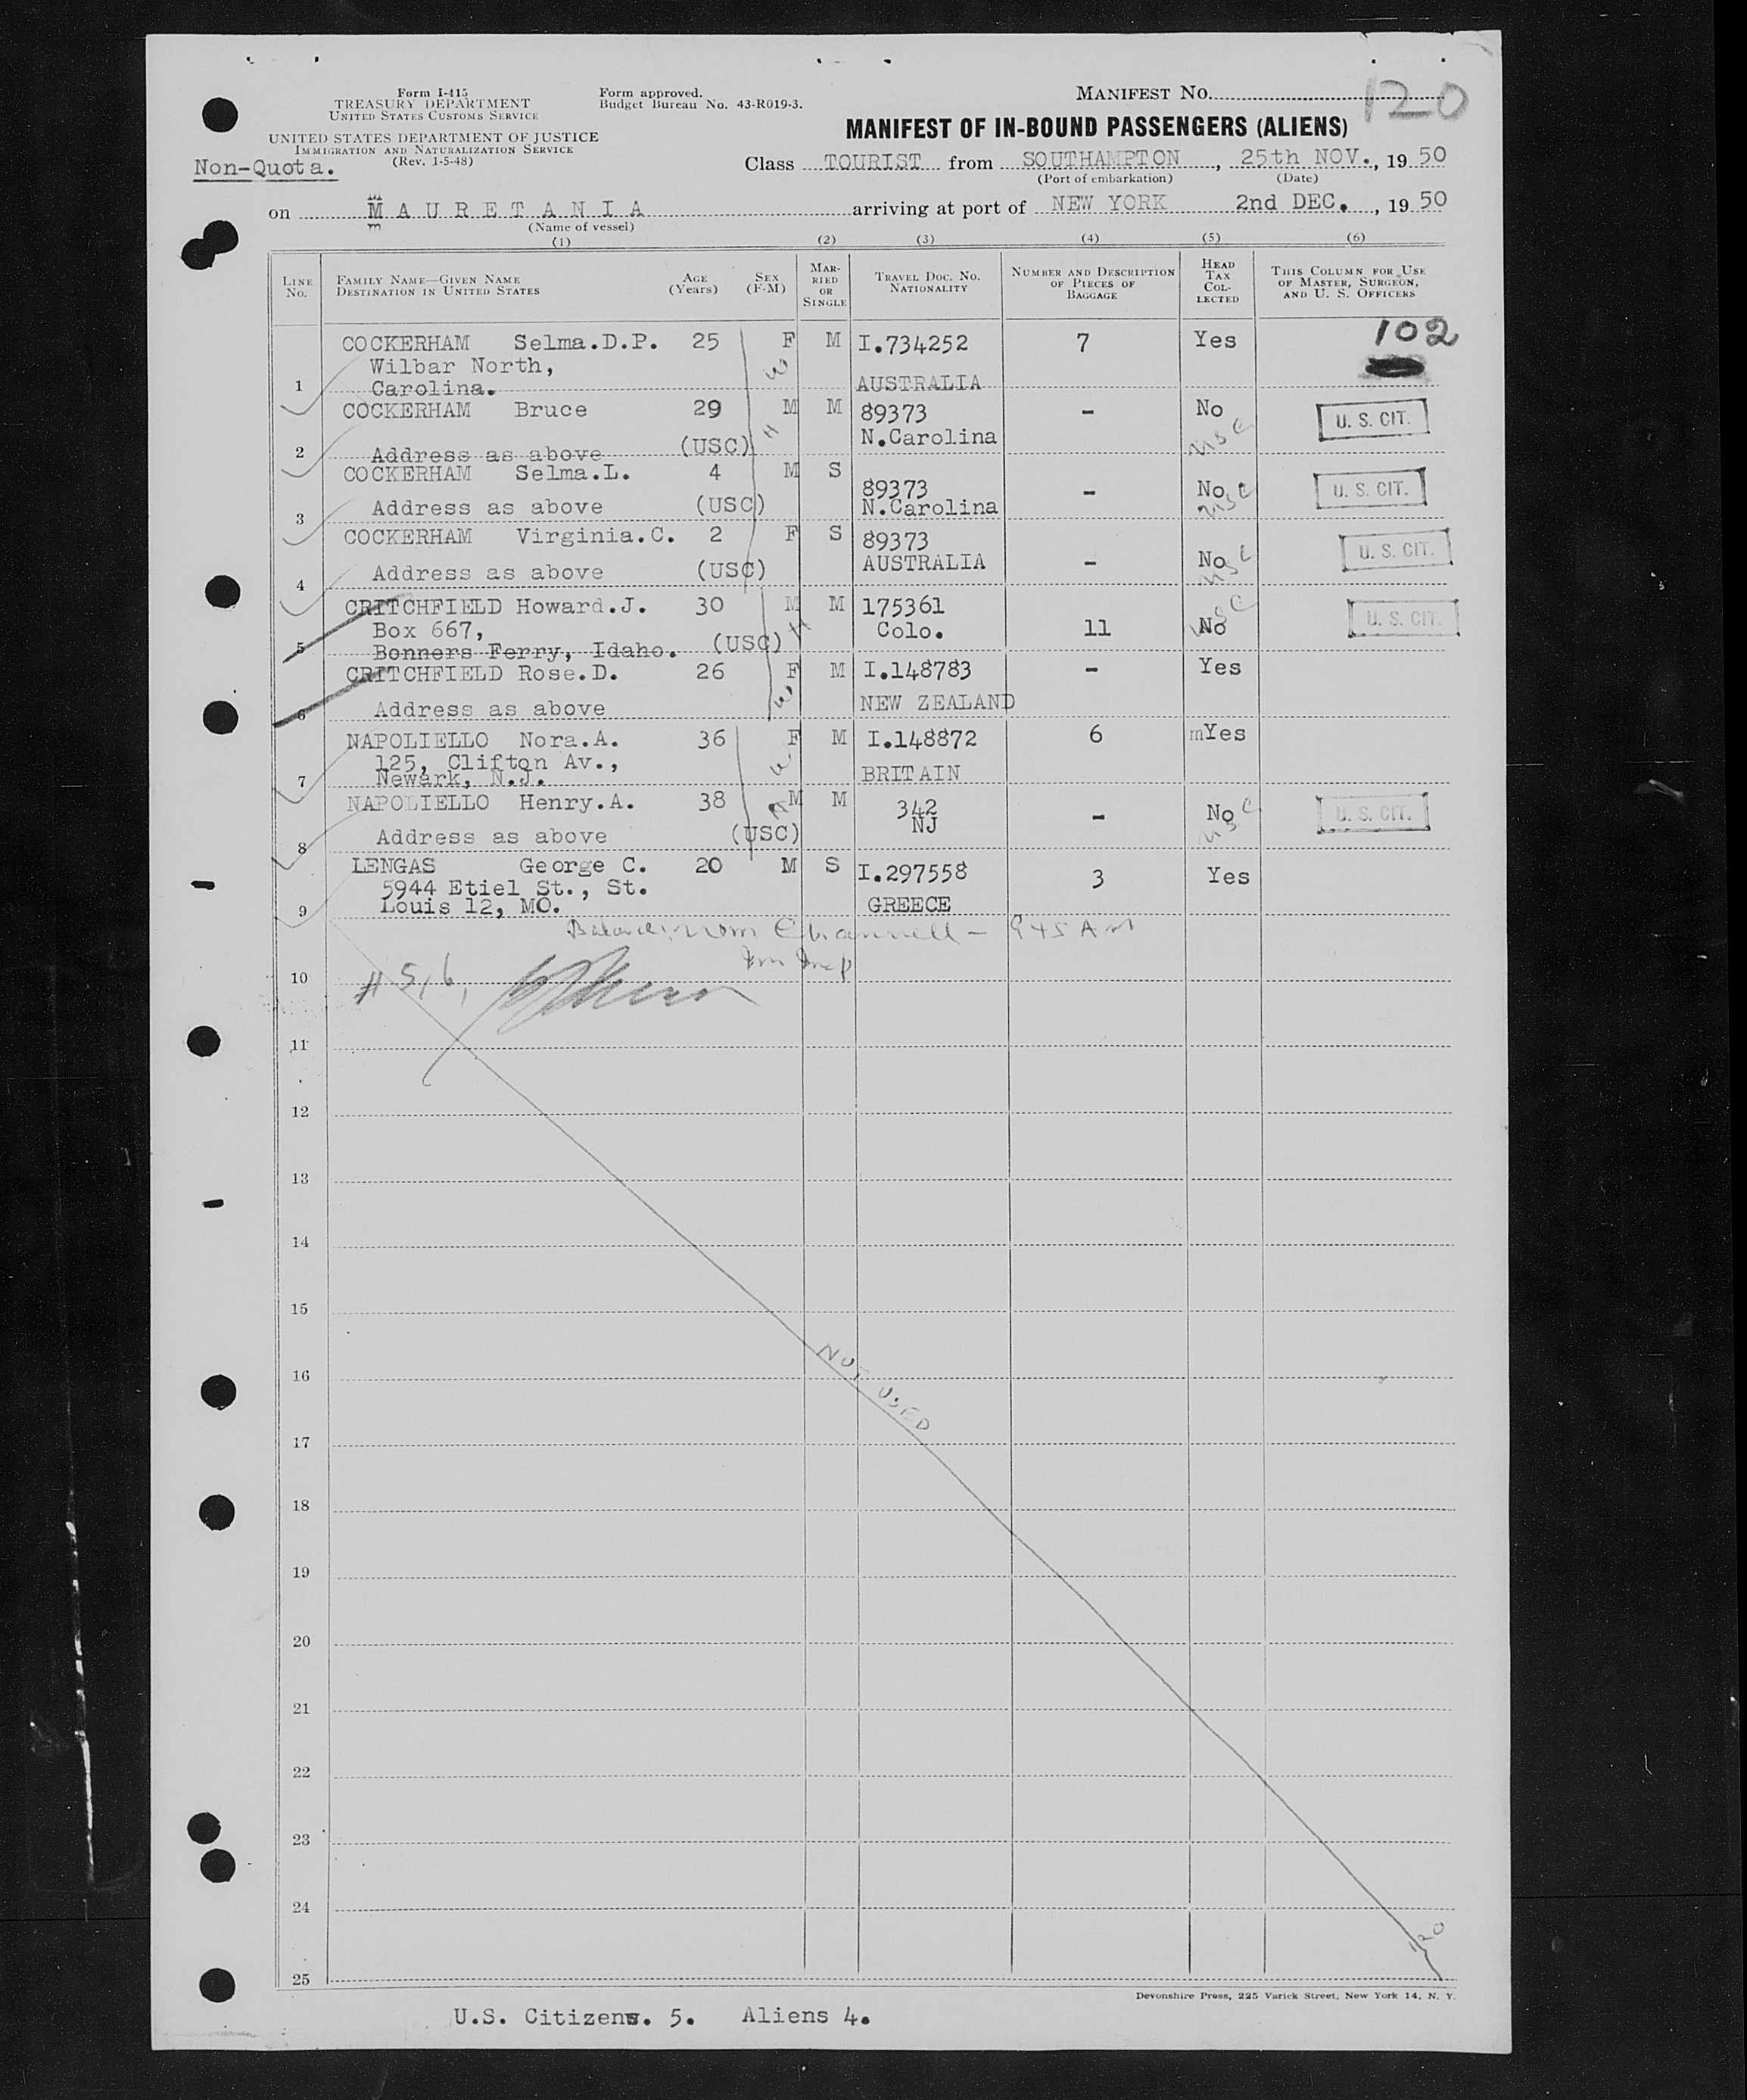 Form I-415
TREASURY DEPARTMENT
UNITED STATES CUSTOMS SERVICE
Form approved.
Budget Bureau No. 43-R019-3.
MANIFEST NO. 120
UNITED STATES DEPARTMENT OF JUSTICE
IMMIGRATION AND NATURALIZATION SERVICE
(Rev. 1-5-48)
MANIFEST OF IN-BOUND PASSENGERS (ALIENS)
Non-Quota.
Class TOURIST from SOUTHAMPTON, 25th NOV., 19 50
(Port of embarkation) (Date)
on MAURETANIA arriving at port of NEW YORK 2nd DEC., 19 50
(Name of vessel)
(1) (2) (3) (4) (5) (6)
LINE No. FAMILY NAME—GIVEN NAME DESTINATION IN UNITED STATES AGE (Years) SEX (F-M) MARRIED OR SINGLE TRAVEL DOC. NO. NATIONALITY NUMBER AND DESCRIPTION OF PIECES OF BAGGAGE HEAD TAX COLLECTED THIS COLUMN FOR USE OF MASTER, SURGEON, AND U. S. OFFICERS
COCKERHAM Selma.D.P. 25 F M I.734252 7 Yes 102
Wilbar North,
1 Carolina. AUSTRALIA
COCKERHAM Bruce 29 M M 89373 - No U. S. CIT.
2 Address as above (USC) N.Carolina USC
COCKERHAM Selma.L. 4 M S 89373 - No USC U. S. CIT.
3 Address as above (USC) N.Carolina
COCKERHAM Virginia.C. 2 F S 89373 - No USC U. S. CIT.
4 Address as above (USC) AUSTRALIA
CRITCHFIELD Howard.J. 30 M M 175361 USC U. S. CIT.
Box 667, Colo. 11 No
5 Bonners Ferry, Idaho. (USC)
CRITCHFIELD Rose.D. 26 F M I.148783 - Yes
6 Address as above NEW ZEALAND
NAPOLIELLO Nora.A. 36 F M I.148872 6 mYes
125, Clifton Av.,
7 Newark, N.J. BRITAIN
NAPOLIELLO Henry.A. 38 M M 342 - No USC U. S. CIT.
8 Address as above (USC) NJ
LENGAS George C. 20 M S I.297558 3 Yes
5944 Etiel St., St.
9 Louis 12, MO. GREECE
945 AM
10 # 5,6,
11
12
13
14
15
16
NOT USED
17
18
19
20
21
22
23
24
120
25
Devonshire Press, 225 Varick Street, New York 14, N. Y.
U.S. Citizens. 5. Aliens 4.